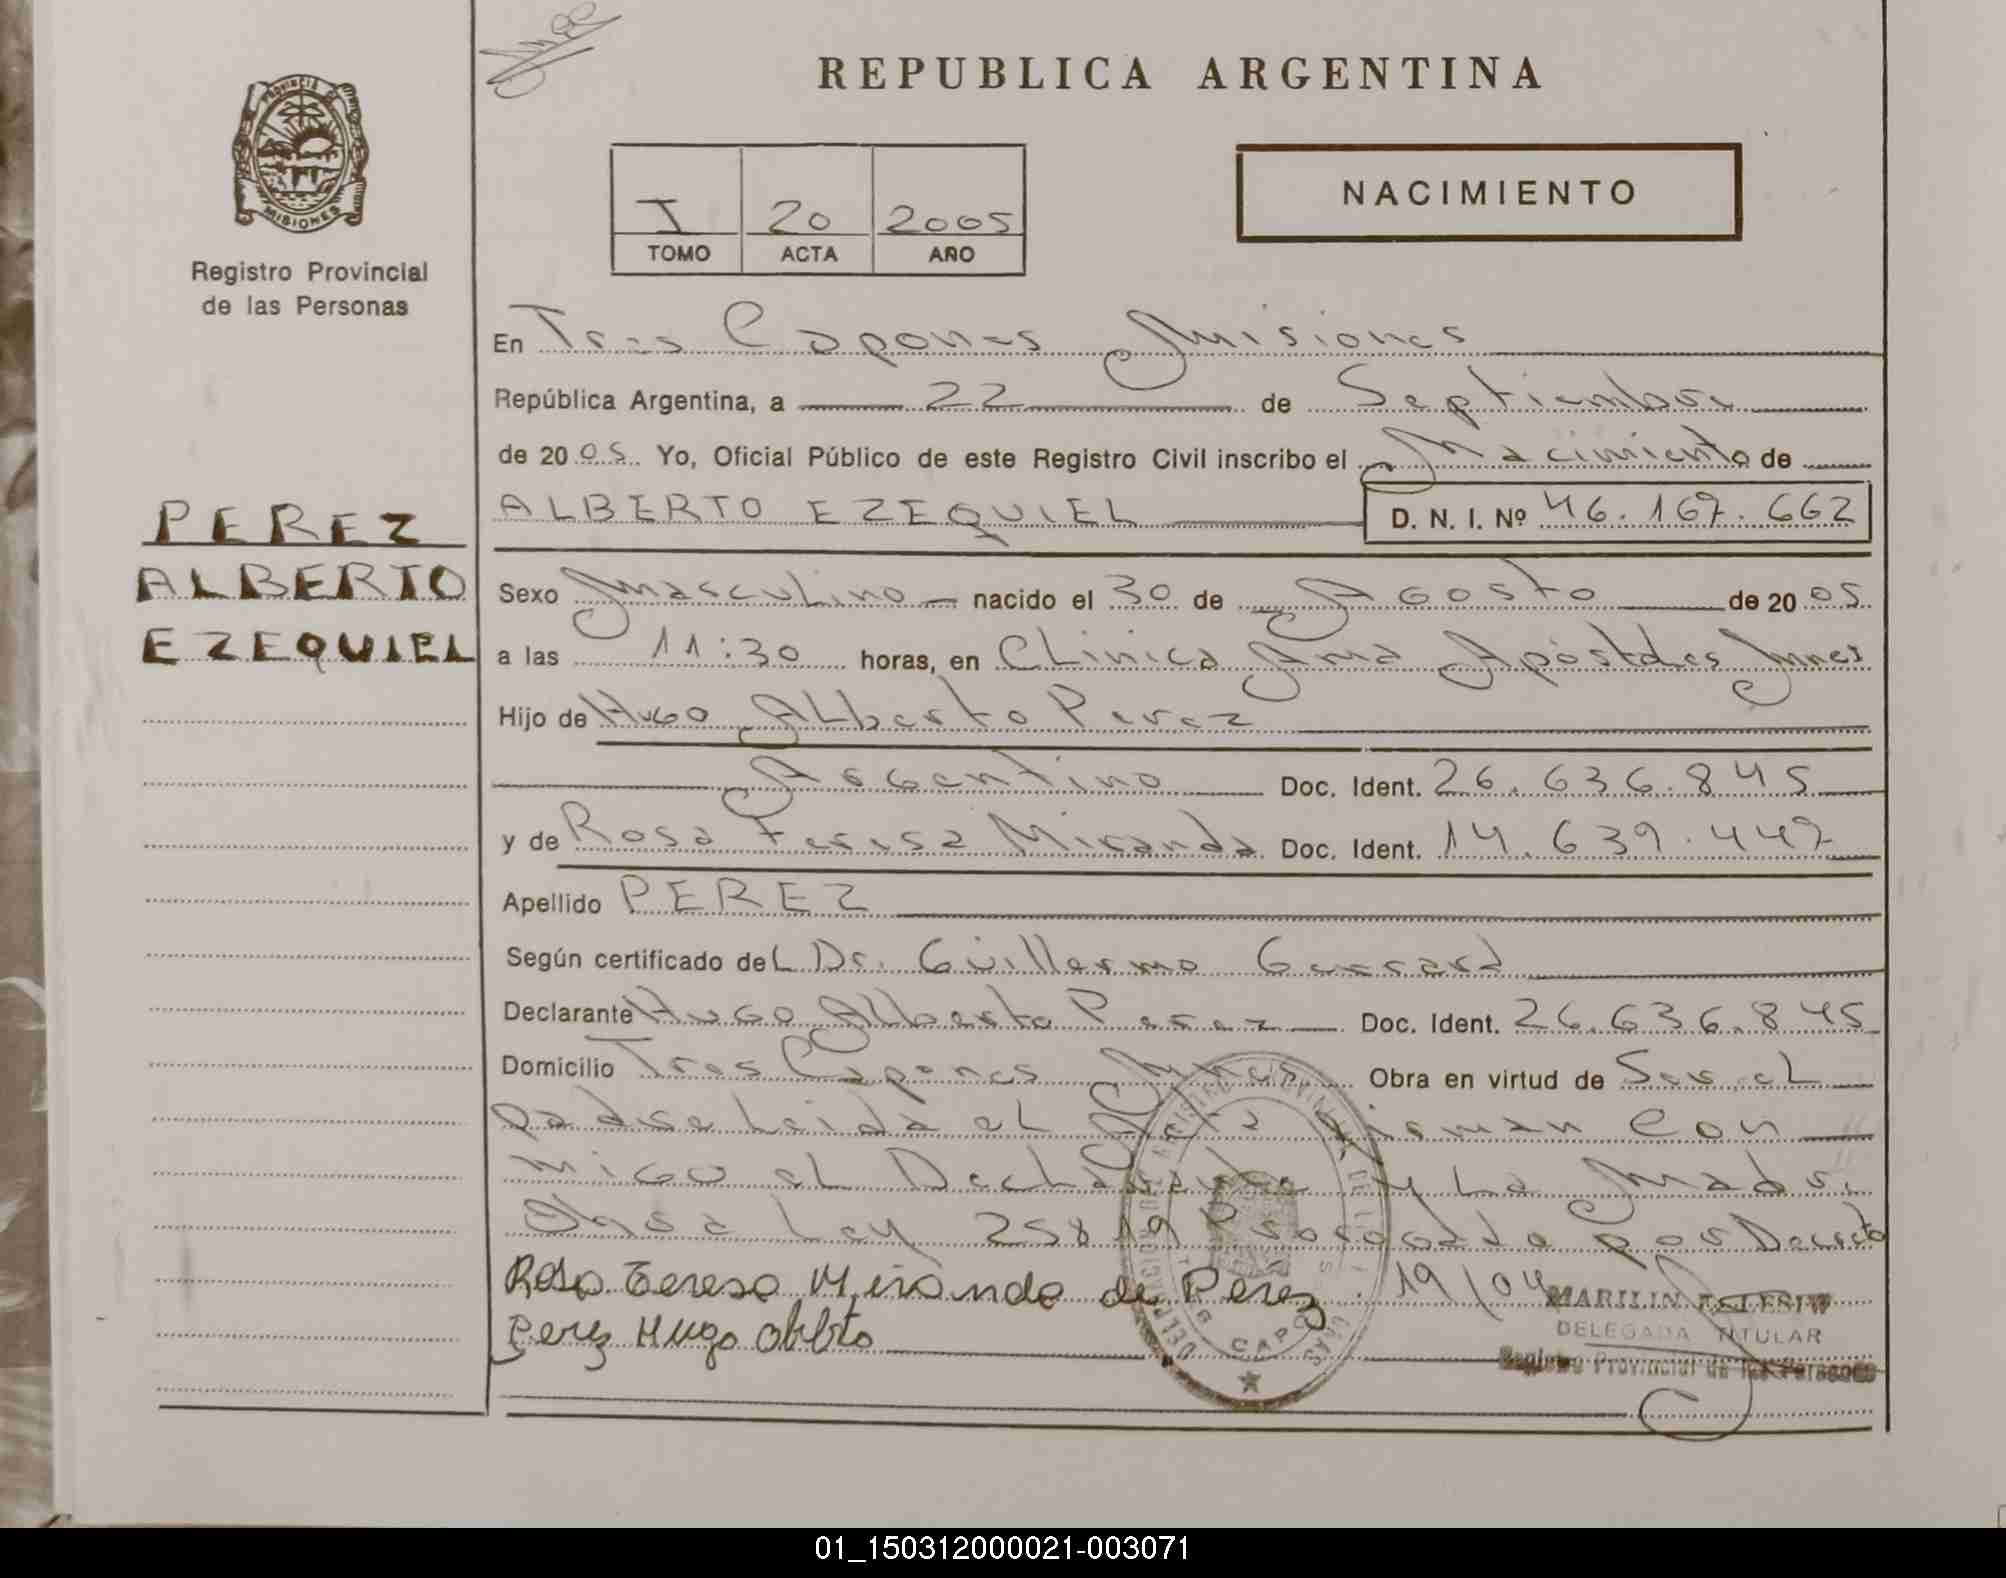 REPUBLICA ARGENTINA
PROVINCIA DE MISIONES
Registro Provincial
de las Personas
I 20 2005
TOMO ACTA AÑO
NACIMIENTO
En Tres Capones Misiones
República Argentina, a 22 de Septiembre
de 2005. Yo, Oficial Público de este Registro Civil inscribo el Nacimiento de
ALBERTO EZEQUIEL D. N. I. Nº 46.167.662
PEREZ
ALBERTO
EZEQUIEL
Sexo Masculino nacido el 30 de Agosto de 2005.
a las 11:30 horas, en Clinica Ama Apóstoles Mnes
Hijo de Hugo Alberto Perez
Argentino Doc. Ident. 26.636.845
y de Rosa Teresa Miranda Doc. Ident. 14.639.447
Apellido PEREZ
Según certificado del Dr. Guillermo
Declarante Hugo Alberto Perez Doc. Ident. 26.636.845
Domicilio Tres Capones Mnes Obra en virtud de Ser el
padre Leida el Acta Firman Con
migo el Declarante y La Madre
Ley 25819 Prorogada por Decreto
19/04
Rosa Teresa Miranda de Perez
Perez Hugo Alblto
MARILIN
DELEGADA TITULAR
Registro Provincial de las Personas
01_150312000021-003071